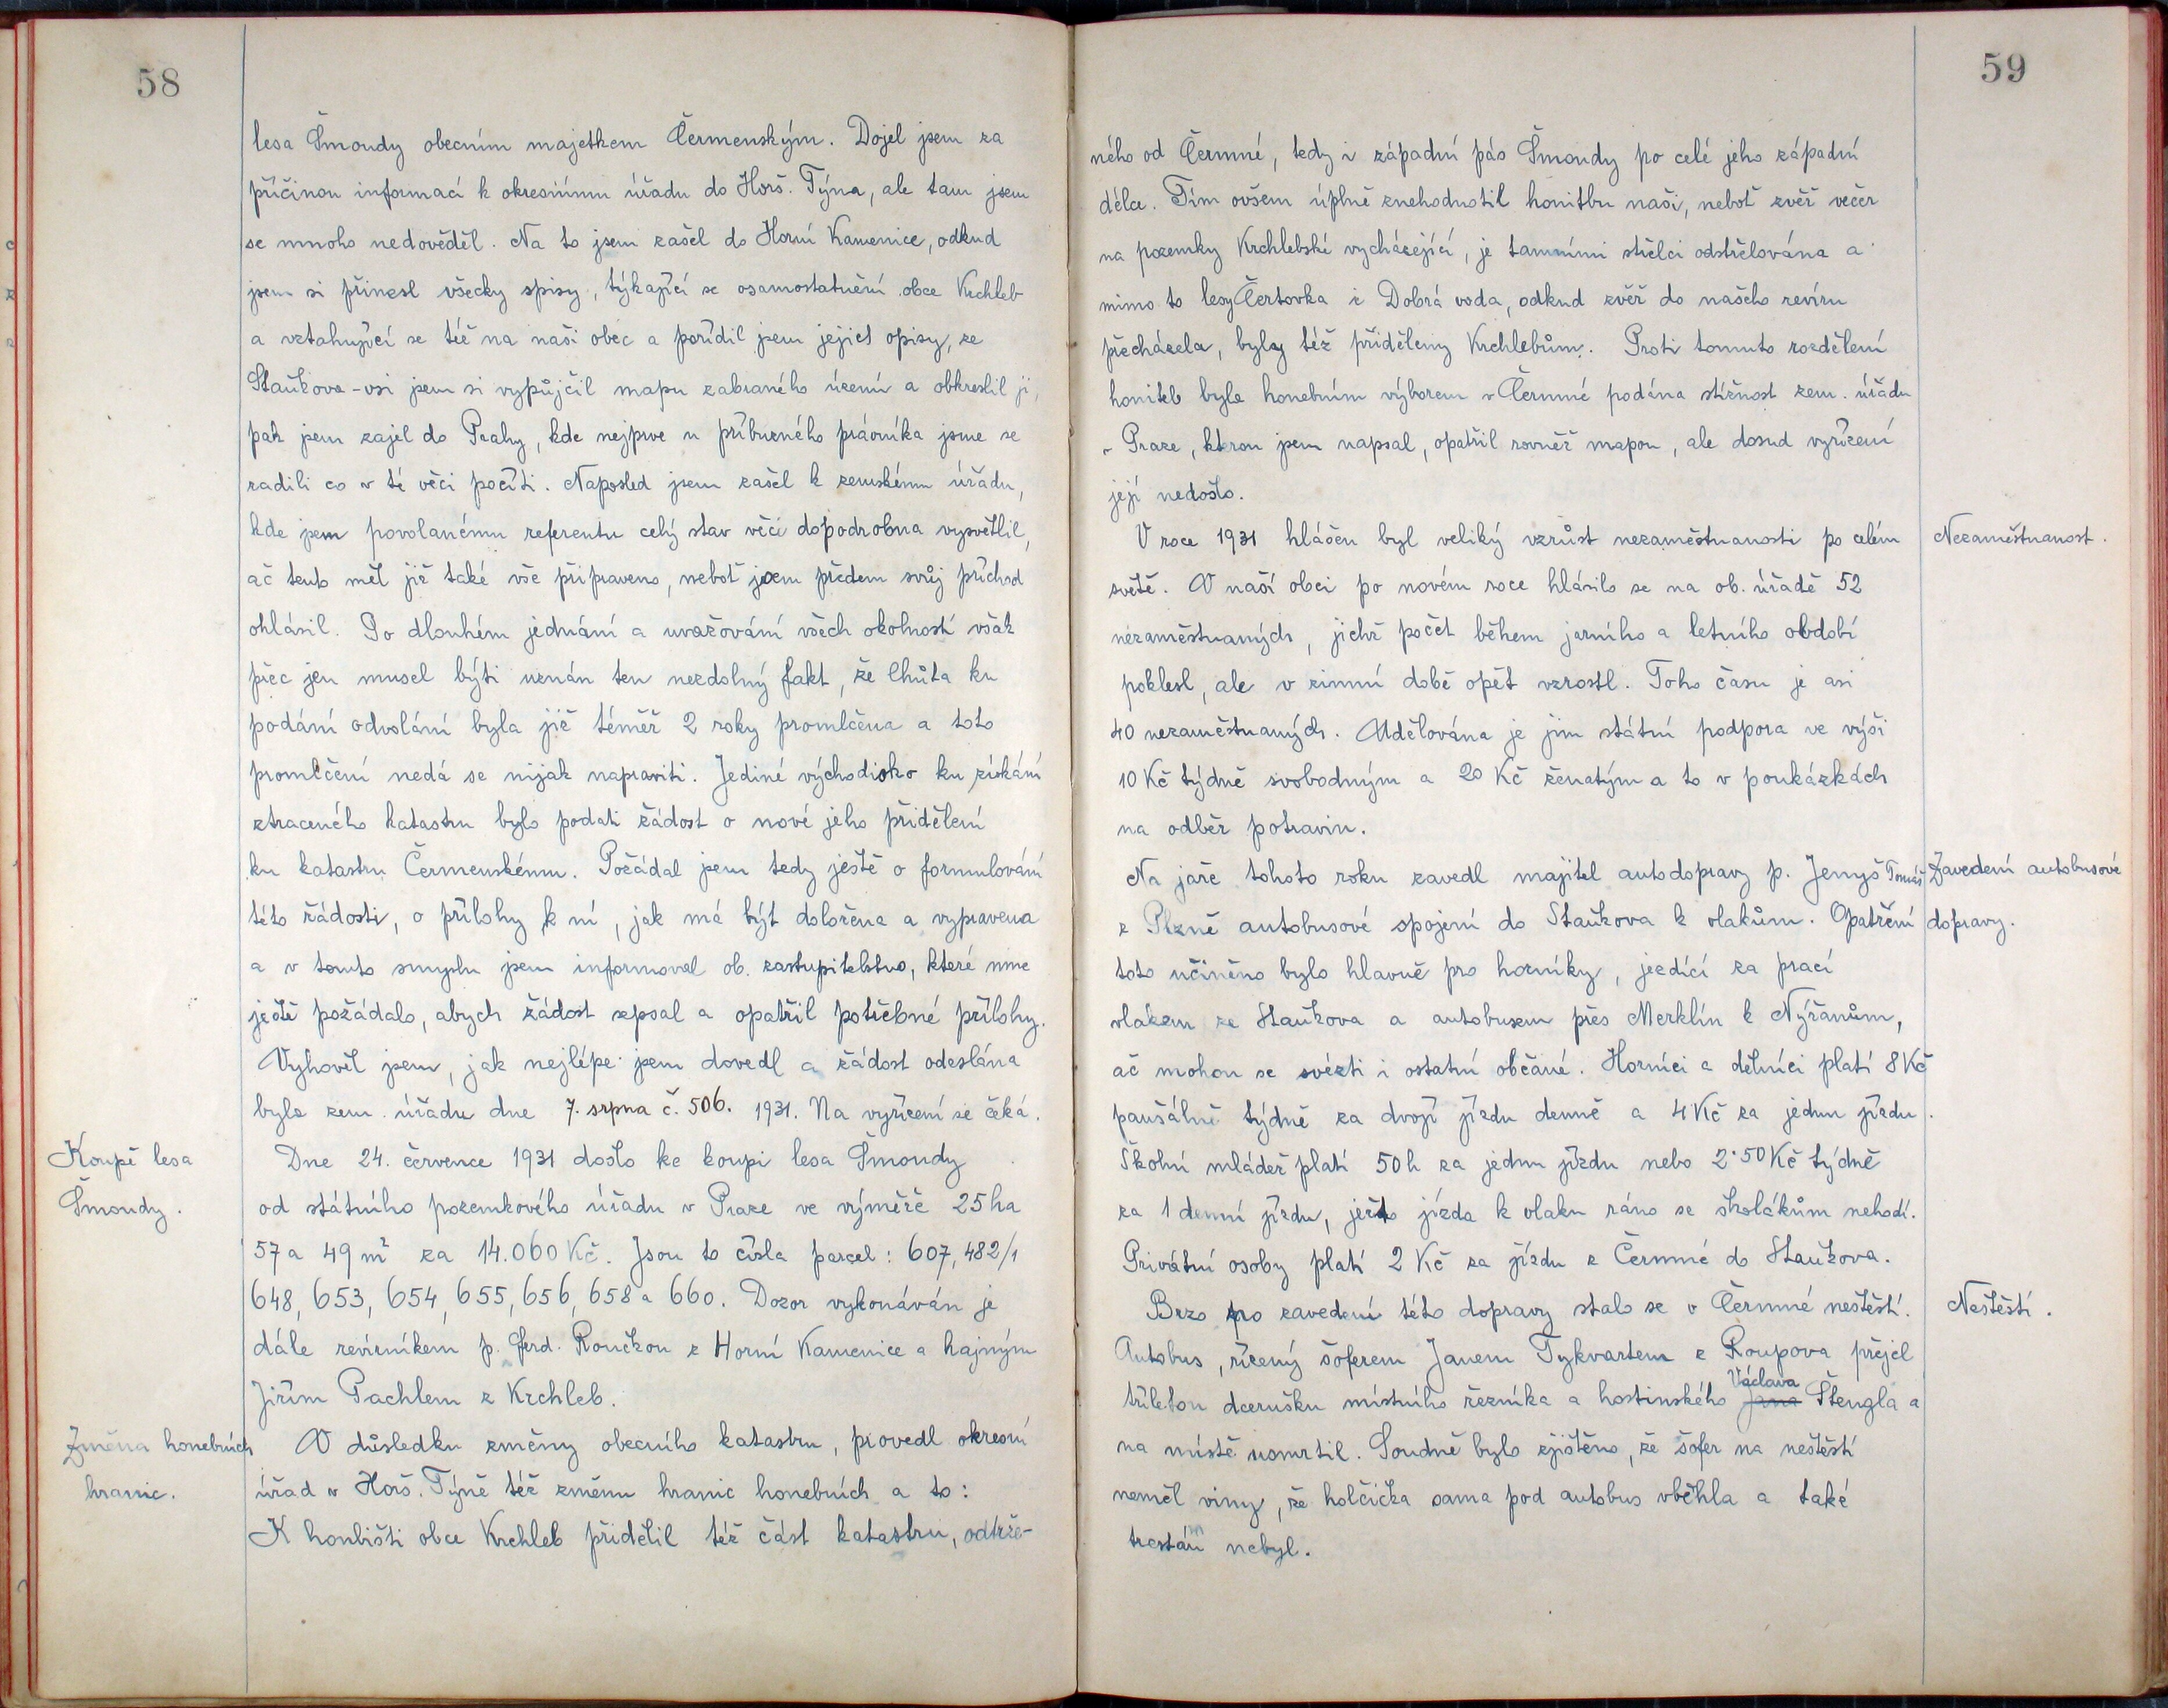 58
lesa Šmondy obecním majetkem Čermenským. Dojel jsem za
příčinou informací k okresnímu úřadu do Horš. Týna, ale tam jsem
se mnoho nedověděl. Na to jsem zašel do Horní Kamenice, odkud
jsem si přinesl všecky spisy, týkající se osamostatnění obce Krchleb
a vztahující se též na naši obec a pořídil jsem jejich opisy, ze
Staňkova-vsi jsem si vypůjčil mapu zabraného území a obkreslil ji,
pak jsem zajel do Prahy, kde nejprve u příbuzného právníka jsme se
radili co v té věci počíti. Naposled jsem zašel k zemskému úřadu,
kde jsem povolanému referentu celý stav věci dopodrobna vysvětlil,
ač tento měl již také vše připraveno, neboť jsem předem svůj příchod
ohlásil. Po dlouhém jednání a uvažování všech okolností však
přec jen musel býti uznán ten nezdolný fakt, že lhůta ku
podání odvolání byla již téměř 2 roky promlčena a toto
promlčení nedá se nijak napraviti. Jediné východisko ku získání
ztraceného katastru bylo podati žádost o nové jeho přidělení
ku katastru Čermenskému. Požádal jsem tedy ještě o formulování
této žádosti, o přílohy k ní, jak má být doložena a vypravena
a v tomto smyslu jsem informoval ob. zastupitelstvo, které mne
ještě požádalo, abych žádost sepsal a opatřil potřebné přílohy.
Vyhověl jsem, jak nejlépe jsem dovedl a žádost odeslána
byla zem. úřadu dne 7. srpna č. 506. 1931. Na vyřízení se čeká.
Koupě lesa
Šmondy.
Dne 24. července 1931 došlo ke koupi lesa Šmondy
od státního pozemkového úřadu v Praze ve výměře 25 ha
57 a 49 m² za 14.060 Kč. Jsou to čísla parcel: 607, 482/1
648, 653, 654, 655, 656, 658 a 660. Dozor vykonáván je
dále revírníkem p. Ferd. Roučkou z Horní Kamenice a hajným
Jiřím Pachlem z Krchleb.
Změna honebních
hranic.
V důsledku změny obecního katastru, provedl okresní
úřad v Horš. Týně též změnu hranic honebních a to:
K honbišti obce Krchleb přidělil též část katastru, odtrže-
59
ného od Čermné, tedy i západní pás Šmondy po celé jeho západní
délce. Tím ovšem úplně znehodnotil honitbu naši, neboť zvěř večer
na pozemky Krchlebské vycházející, je tamními střelci odstřelována a
mimo to lesy Čertovka i Dobrá voda, odkud zvěř do našeho revíru
přecházela, byly též přiděleny Krchlebům. Proti tomuto rozdělení
honiteb byla honebním výborem v Čermné podána stížnost zem. úřadu
v Praze, kterou jsem napsal, opatřil rovněž mapou, ale dosud vyřízení
její nedošlo.
V roce 1931 hlášen byl veliký vzrůst nezaměstnanosti po celém
Nezaměstnanost.
světě. V naší obci po novém roce hlásilo se na ob. úřadě 52
nezaměstnaných, jichž počet během jarního a letního období
poklesl, ale v zimní době opět vzrostl. Toho času je asi
40 nezaměstnaných. Udělována je jim státní podpora ve výši
10 Kč týdně svobodným a 20 Kč ženatým a to v poukázkách
na odběr potravin.
Na jaře tohoto roku zavedl majitel autodopravy p. Jemyš Tomáš
Zavedení autobusové
dopravy.
z Plzně autobusové spojení do Staňkova k vlakům. Opatření
toto učiněno bylo hlavně pro horníky, jezdící za prací
vlakem ze Staňkova a autobusem přes Merklín k Nýřanům,
ač mohou se svézti i ostatní občané. Horníci a dělníci platí 8 Kč
paušálně týdně za dvojí jízdu denně a 4 Kč za jednu jízdu.
Školní mládež platí 50 h za jednu jízdu nebo 2·50 Kč týdně
za 1 denní jízdu, ježto jízda k vlaku ráno se školákům nehodí.
Privátní osoby platí 2 Kč za jízdu z Čermné do Staňkova.
Brzo po zavedení této dopravy stalo se v Čermné neštěstí.
Neštěstí.
Autobus, řízený šoferem Janem Tykvartem z Roupova přejel
tříletou dcerušku místního řezníka a hostinského Jana Václava Štengla a
na místě usmrtil. Soudně bylo zjištěno, že šofer na neštěstí
neměl viny, že holčička sama pod autobus vběhla a také
trestán nebyl.